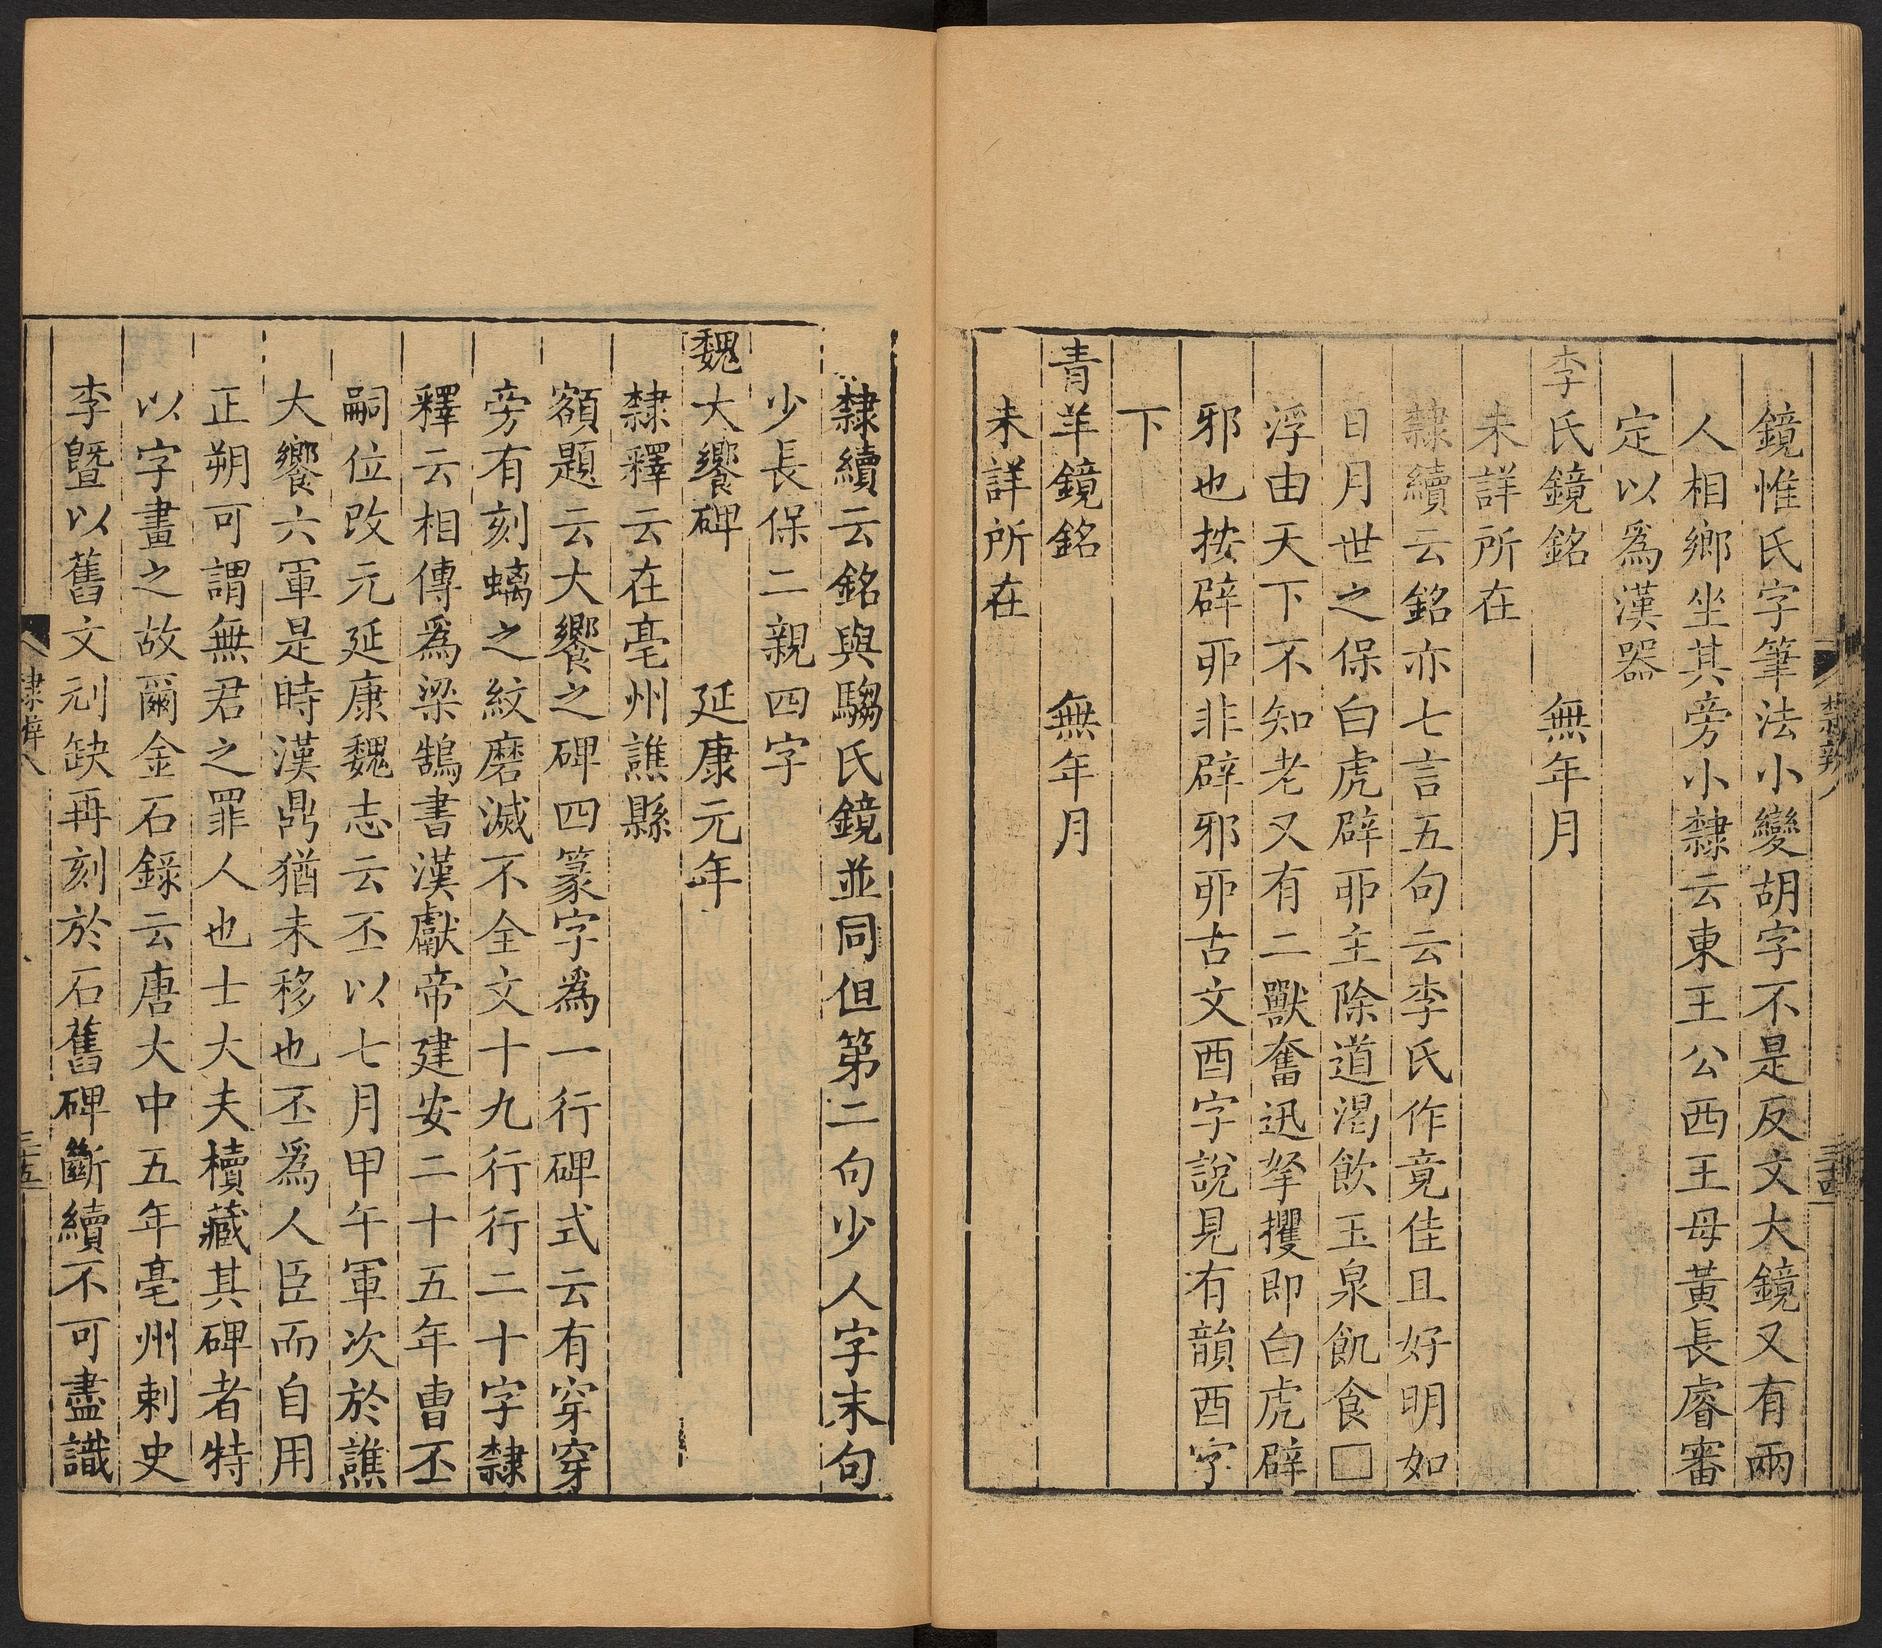 鏡惟氏字筆法小變胡字不是反文大鏡又有兩
人相鄉坐其旁小隸云東王公西王母黃長睿審
定以爲漢器
李氏鏡銘　無年月
未詳所在
隸續云銘亦七言五句云李氏作竟佳且好明如
日月世之保白虎辟邪主除道渴飲玉泉飢食□
浮由天下不知老又有二獸奮迅拏攫即白虎辟
邪也按辟丣非辟邪丣古文酉字說見有韻酉字
下
青羊鏡銘　無年月
未詳所在
隸續云銘與騶氏鏡並同但第二句少人字末句
少長保二親四字
魏大饗碑　延康元年
隸釋云在亳州譙縣
額題云大饗之碑四篆字爲一行碑式云有穿穿
旁有刻螭之紋磨滅不全文十九行行二十字隸
釋云相傳爲梁鵠書漢獻帝建安二十五年曹丕
嗣位改元延康魏志云丕以七月甲午軍次於譙
大饗六軍是時漢鼎猶未移也丕爲人臣而自用
正朔可謂無君之罪人也士大夫櫝藏其碑者特
以字畫之故爾金石錄云唐大中五年亳州剌史
李暨以舊文刓缺再刻於石舊碑斷續不可盡識
隸辨八
三五